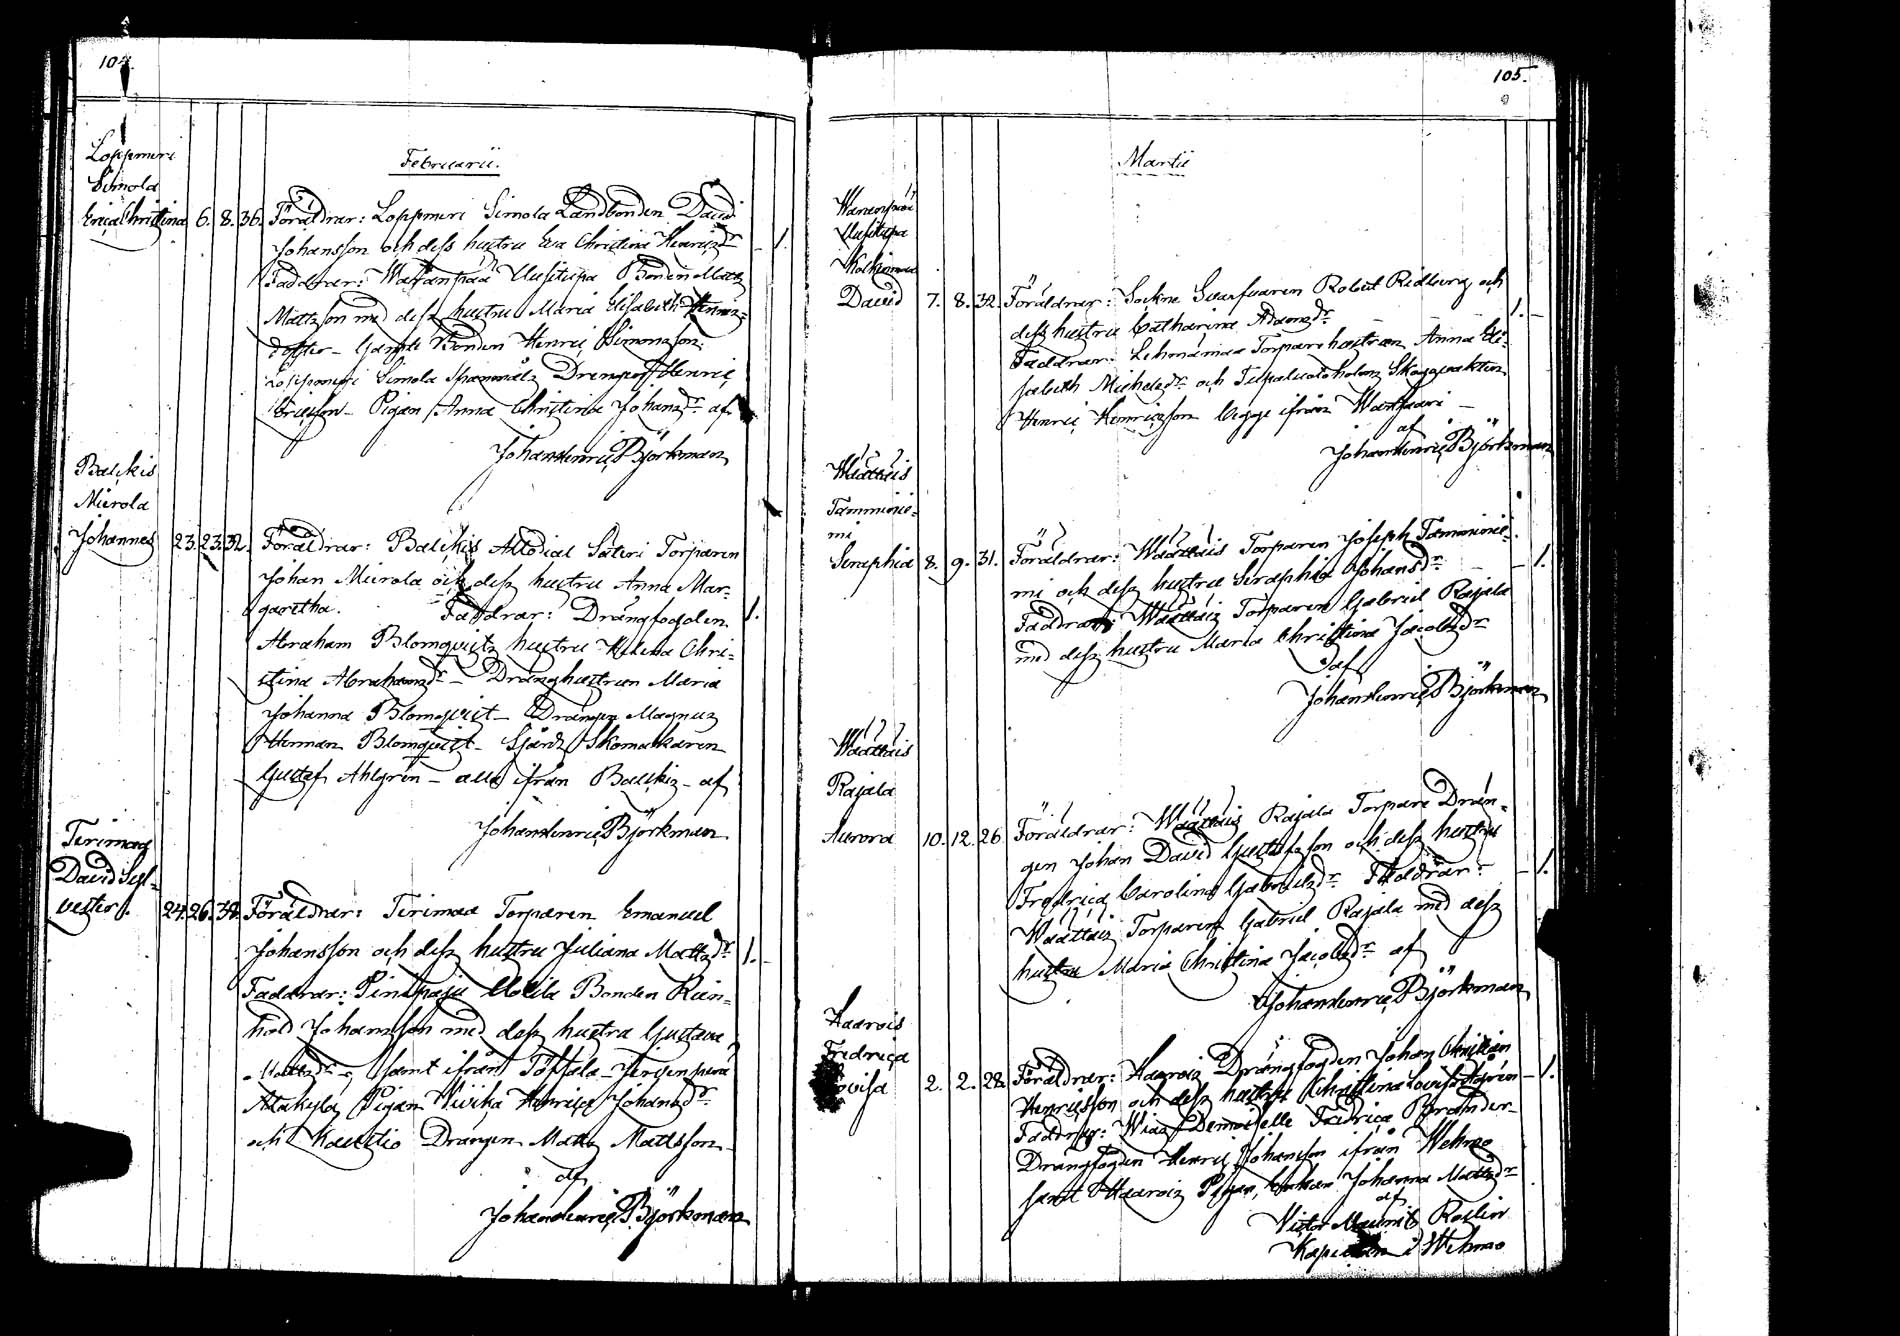 104.
Februarii.
Loppmeri
Simola
Erica Christina 6. 8. 36. Föräldrar: Loppmeri Simola Landbonden David
Johansson och dess hustru Eva Christina Henricsdr 1.
Faddrar: Waranpää Uusitupa Bonden Matts
Mattsson med dess hustru Maria Elisabeth Henrics=
dotter - Gamle Bonden Henric Simonsson
Loppmeri Simola Drengen Henric
Ericsson - Pigan Anna Christina Johansdr af
Johan Henric Björkman
Balckis
Mierola
Johannes 23. 23. 32. Föräldrar: Balckis Allodial Säteri Torparen
Johan Mierola och dess hustru Anna Mar=
garetha. Faddrar: Drängfogden 1.
Abraham Blomqvists hustru Helena Chri=
stina Abrahamsdr - Dränghustrun Maria
Johanna Blomqvist - Drängen Magnus
Herman Blomqvist - Skomakaren
Gustaf Ahlgrén - alla ifrån Balckis - af
Johan Henric Björkman
Terimaa
David Syl=
vester. 24. 26. 38. Föräldrar: Terimaa Torparen Emanuel
Johansson och dess hustru Juliana Mattsdr 1.
Faddrar: Pinipaju Uotila Bonden Rein=
hold Johansson med dess hustru Gustava
Mattsdr - samt ifrån Töffsala
Alakylä Pigan Vivika Johansdr
och Kaustio Drängen Matts Mattsson
af
Johan Henric Björkman
105.
Martii
Waranpää
Uusitupa
David 7. 8. 32. Föräldrar: Sockne Svarfvaren Robert Ridberg och
dess hustru Catharina Adamsdr 1.
Faddrar: Lehmämaa Torpare hustrun Anna Eli=
sabeth Michelsdr och Skogvakten
Henric Henricsson begge ifrån
af
Johan Henric Björkman
Wäättäis
Tamminie=
mi
Seraphia 8. 9. 31. Föräldrar: Wäättäis Torparen Joseph Tamminie=
mi och dess hustru Seraphia Johansdr 1.
Faddrar: Wäättäis Torparen Gabriel Rajala
med dess hustru Maria Christina Jacobsdr
af
Johan Henric Björkman
Wäättäis
Rajala
Aurora 10. 12. 26 Föräldrar: Wäättäis Rajala Torpare Drän=
gen Johan David Gustafsson och dess hustru
Fredrica Carolina Gabrielsdr Faddrar: 1.
Wäättäis Torparen Gabriel Rajala med dess
hustru Maria Christina Jacobsdr af
Johan Henric Björkman
Haarois
Fredrica
Lovisa 2. 2. 28. Föräldrar: Haarois Drängfogden Johan Christian
Henricsson och dess hustru Christina Lovisa 1.
Faddrar: Wias Demoiselle Fredrica Brander
Drängfogden Henric Johansson ifrån Wehmo
samt Haarois Pigan Johanna Mattsdr
af
Victor Mauritz Roslin
Kapellan i Wehmo